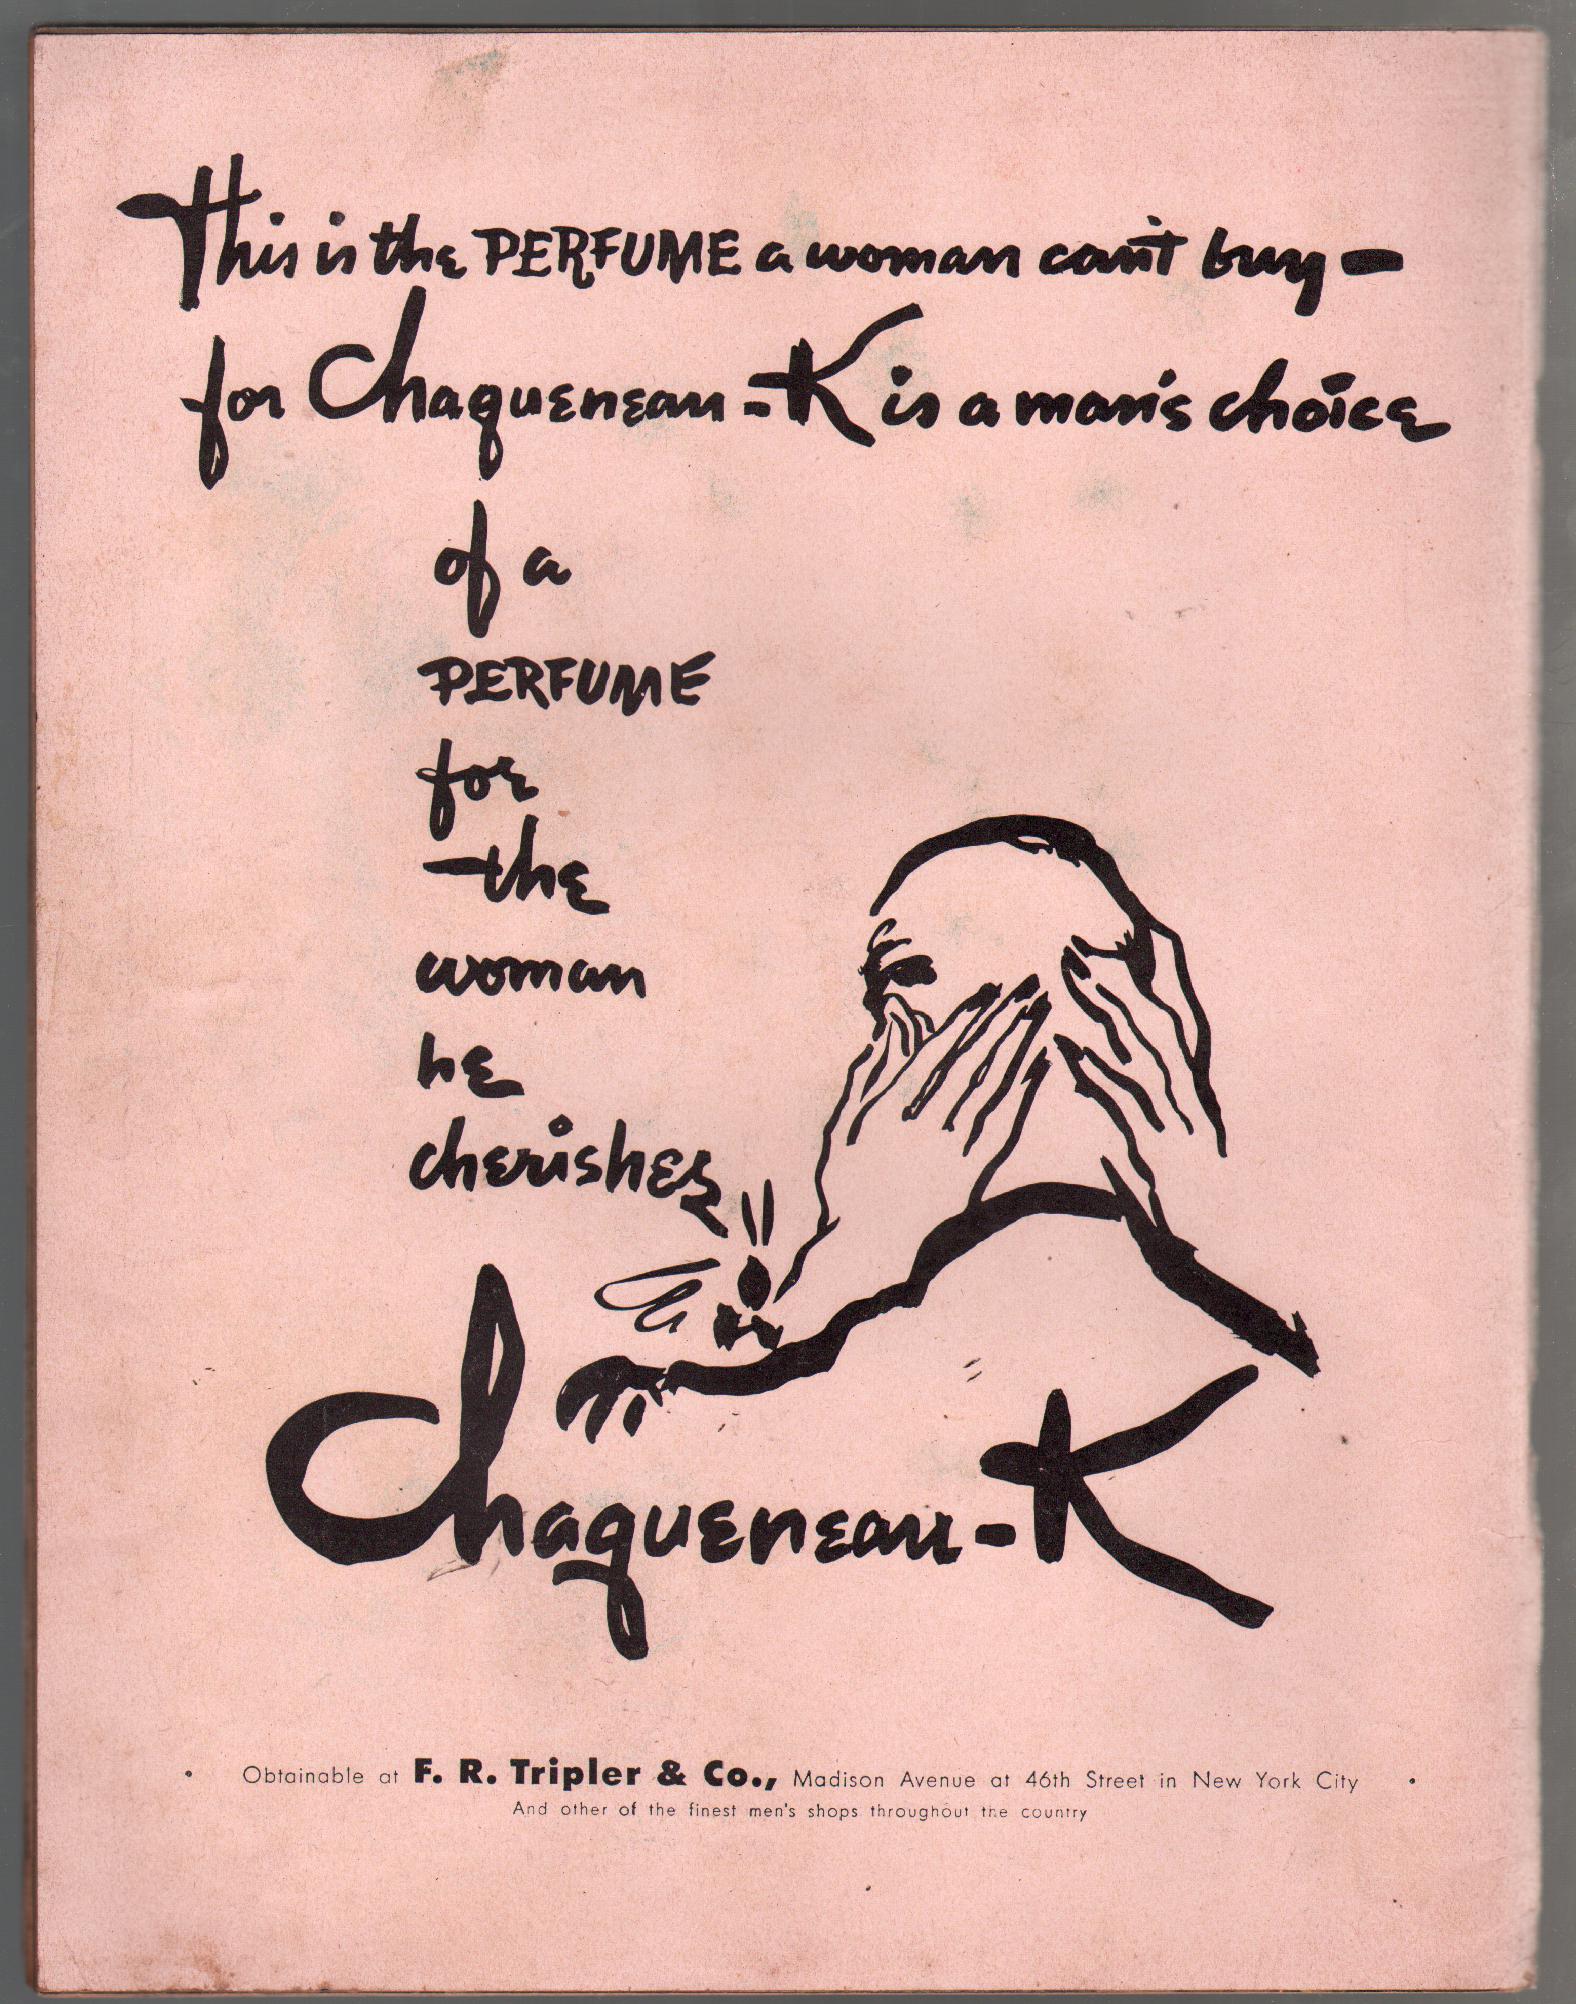 This is the PERFUME a woman can't buy —
for Chaqueneau-K is a man's choice
of a
PERFUME
for
the
woman
he
cherishes
Chaqueneau-K
• Obtainable at F. R. Tripler & Co., Madison Avenue at 46th Street in New York City •
And other of the finest men's shops throughout the country